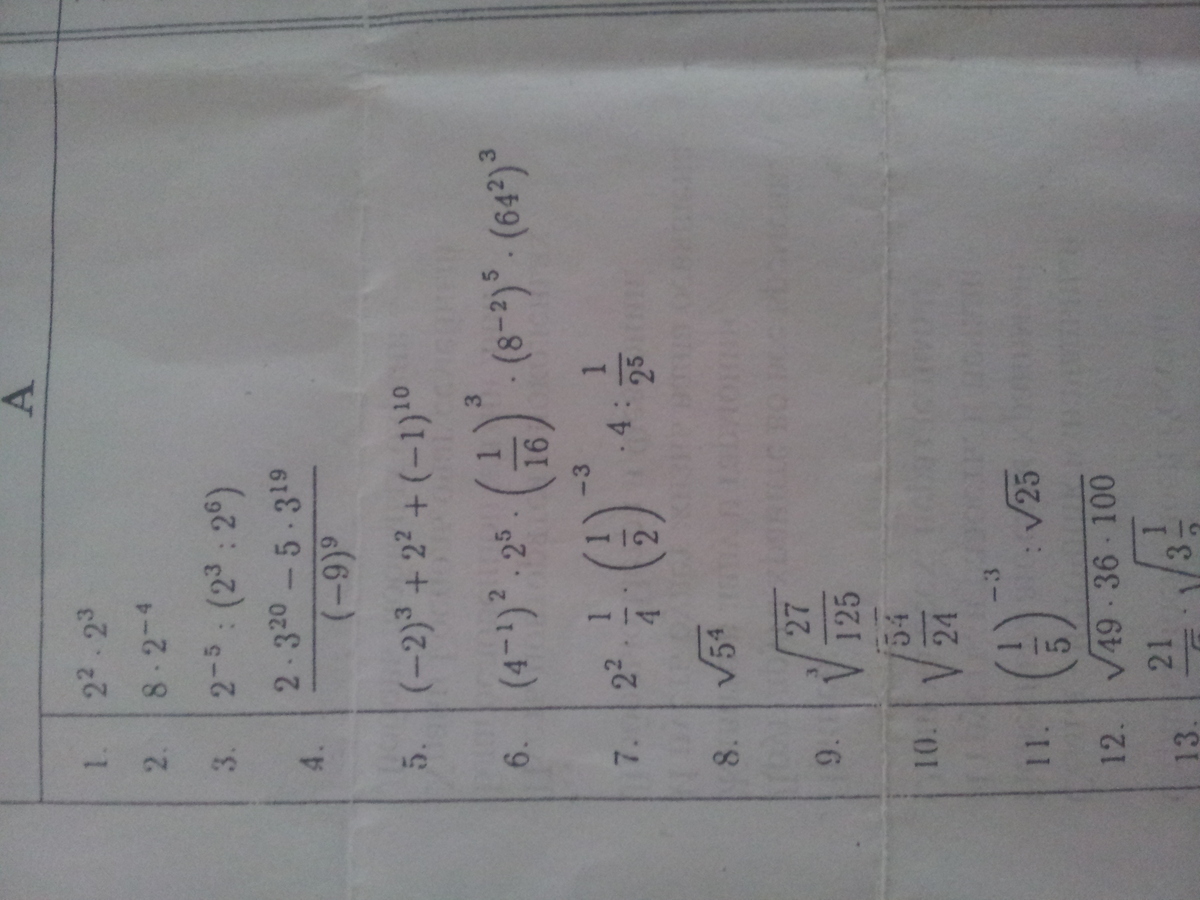 A
1. 2² · 2³
2. 8 · 2⁻⁴
3. 2⁻⁵ : (2³ : 2⁶)
4. (2 · 3²⁰ − 5 · 3¹⁹)/(−9)⁹
5. (−2)³ + 2² + (−1)¹⁰
6. (4⁻¹)² · 2⁵ · (1/16)³ · (8⁻²)⁵ · (64²)³
7. 2² · 1/4 · (1/2)⁻³ · 4 : 1/2⁵
8. √5⁴
9. ³√(27/125)
10. √(5⁴/24)
11. (1/5)⁻³ : √25
12. √(49 · 36 · 100)
13. 21